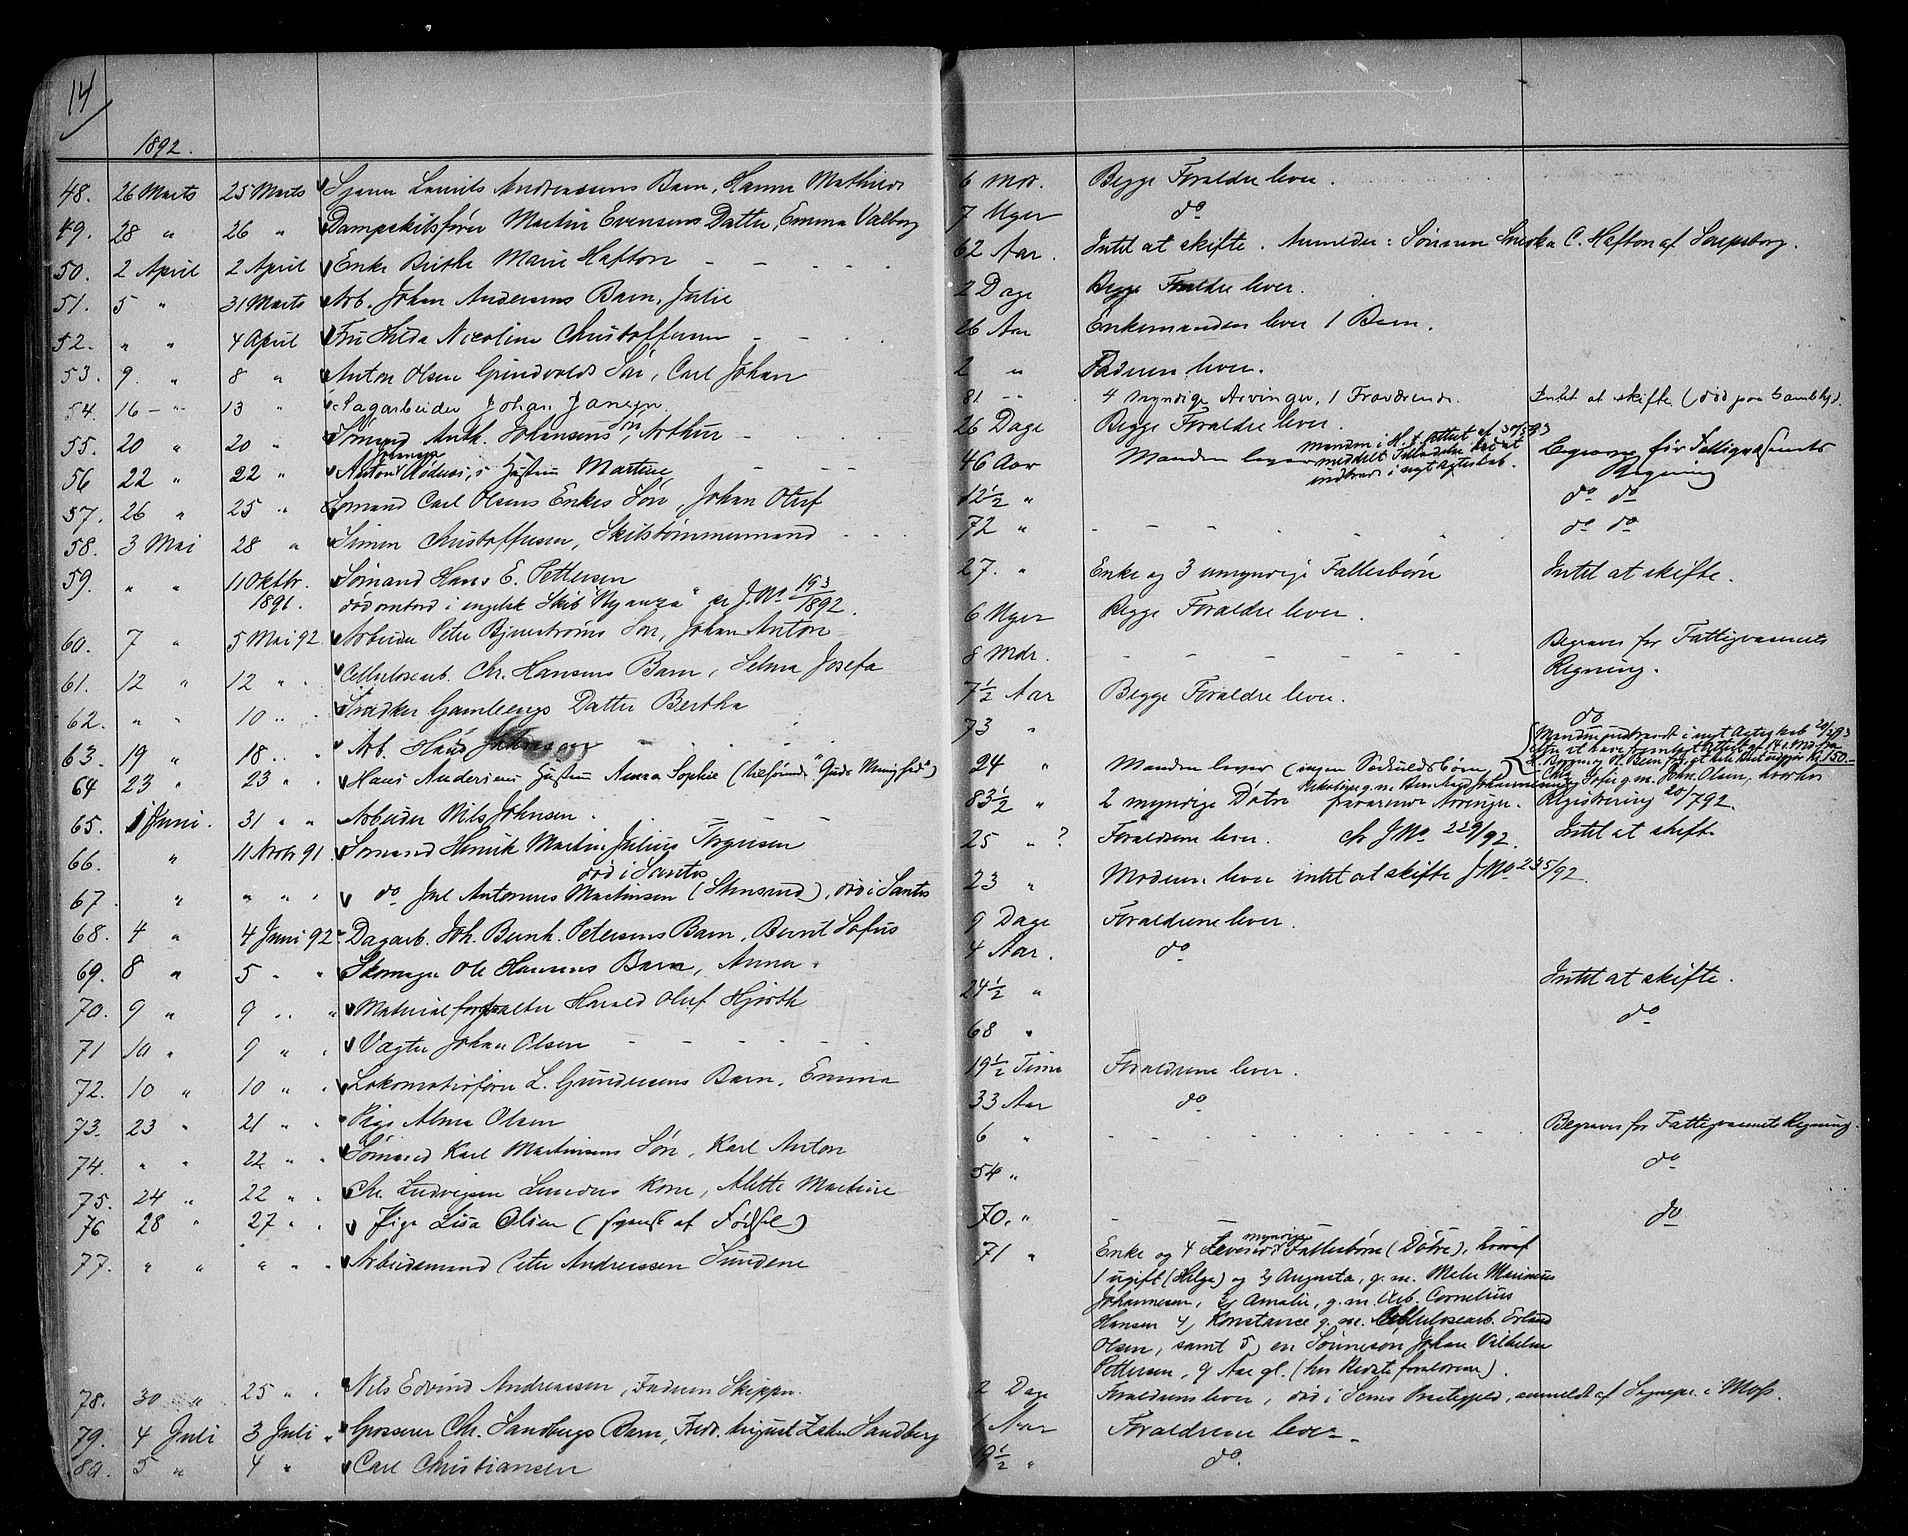 14
1892.
48. 26 Marts 25 Marts Laurits Andreasens Barn, Hanna Mathilde 6 Mdr. Begge Foraldre lever.
49. 28 " 26 " Dampskibsfører Martin Evensens Datter, Emma Valborg 7 Uger do
50. 2 April 2 April Enke Birthe Marie Hafton 62 Aar. Intet at skifte. Anmelder: Sønnen C. Hafton af Sarpsborg.
51. 5 " 31 Marts Arb. Johan Andersens Barn, Julie 2 Dage Begge Foraldre lever.
52. " " 4 April Fru Hilda Nicoline Christoffersen 26 Aar Enkemanden lever 1 Barn.
53. 9. " 8 " Anton Olsen Grindvolds Søn, Carl Johan 2 " Faderen lever.
54. 16 - " 13 " Sagarbeider Johan Jansen. 81 - " 4 myndige Arvinger, 1 Fraværende. Intet at skifte (død paa Gamlehj.
55. 20 " 20 " Sømand Anth. Johansens Søn, Arthur 26 Dage Begge Foraldre lever.
56 22 " 22 " Anton Hustru Martine 46 Aar Manden lever Begraves for Fattigvæsenets Regning
57. 26 " 25 " Sømand Carl Olsens Enkes Søn, Johan Oluf 12½ " do do
58. 3 Mai 28 " Simen Christoffersen, Skibstømmermand 72 " do do
59. " " 11 Oktbr. 1891. Sømand Hans E. Pettersen 27. " Enke og 3 umyndige Fallesbørn Intet at skifte.
død ombord i engelsk Skib "Nyanza" cfr J.No 193/1892.
60. 7 " 5 Mai 92 Arbeider Peter Bjerstrøms Søn, Johan Anton 6 Uger Begge Foraldre lever.
61. 12 " 12 " " Cellulosearb. Chr. Hansens Barn, Selma Josefa 8 Mdr. Begraves for Fattigvasenets Regning.
62. " " 10 " " Snedker Gambergs Datter Bertha 7½ Aar Begge Foraldre lever.
63. 19 " 18 " " Arb. Hans Johnsen 73 " do
64 23 " 23 " " Hans Andersens Hustru Anna Sophie 24 " Manden lever (ingen
65. 1 Juni. 31 " " Arbeider Nils Johnsen. 83½ " 2 myndige Døtre fraværende Arvinger. Registrering 20/792.
66. " 11 Novbr 91. Sømand Henrik Martin Julius Torgersen død i Santos 25 " ? Foraldrene lever. cfr JNo 229/92. Intet at skifte
67. " " " " do Jul Antonius Martinsen (Stensrud), død i Santos 23 " Moderen lever intet at skifte JNo 235/92
68. 4 " 4 Juni 92 Dagarb. Joh. Bernh. Petersens Barn, Bernt Sofus 9 Dage Foraldrene lever.
69. 8 " 5 " " Skomager Ole Hansens Barn, Anna 4 Aar. do
70. 9 " 9 " " Materialforvalter Harald Oluf Hjorth 24½ " Intet at skifte.
71 10 " 9 " " Vægter Johan Olsen 68 " do
72. 10 " 10 " " Lokomotivfører L. Gundersens Barn, Emma 19½ Time Foraldrene lever.
73. 23 " 21 " " Pige Alma Olsen 33 Aar do
74. " " 22 " " Sømand Karl Martinsens Søn, Karl Anton 6 " Begraves for Fattigvasenets Regning.
75. 24 " 22 " " Chr. Ludvigsen Kone, Alette Martine 54 " do
76 28 " 27 " " Pige Lisa Olsen (svensk af Fødsel) 70. " do
77. " " " " " Arbeidsmand Peter Andreassen Sundene 71 " Enke og 4 myndige Fallesbørn (Døtre), hvoraf
1 ugift (Helga) og 2) Augusta, g.m. Maler Marinus
Johannesen, 3) Amalie, g.m. Arb. Cornelius
Hansen 4) Konstance g.m. Cellulosearb. Erland
Olsen, samt 5) en Sønnesøn Johan Vilhelm
Pettersen, 9 Aar gl. (hos Bedsteforaldrene).
78. 30 " 25 " " Nils Edvind Andreassen, Faderen Skipper. 2 Dage Foraldrene lever, død i Sems Prastegjeld, anmeldt af Sognepr. i Moss.
79. 4 Juli 3 Juli " Grosserer Chr. Sandbergs Barn, Fredr. August Sandberg 1 Aar Foraldrene lever.
80. 5 " 4 " Carl Christiansen 19½ " do.